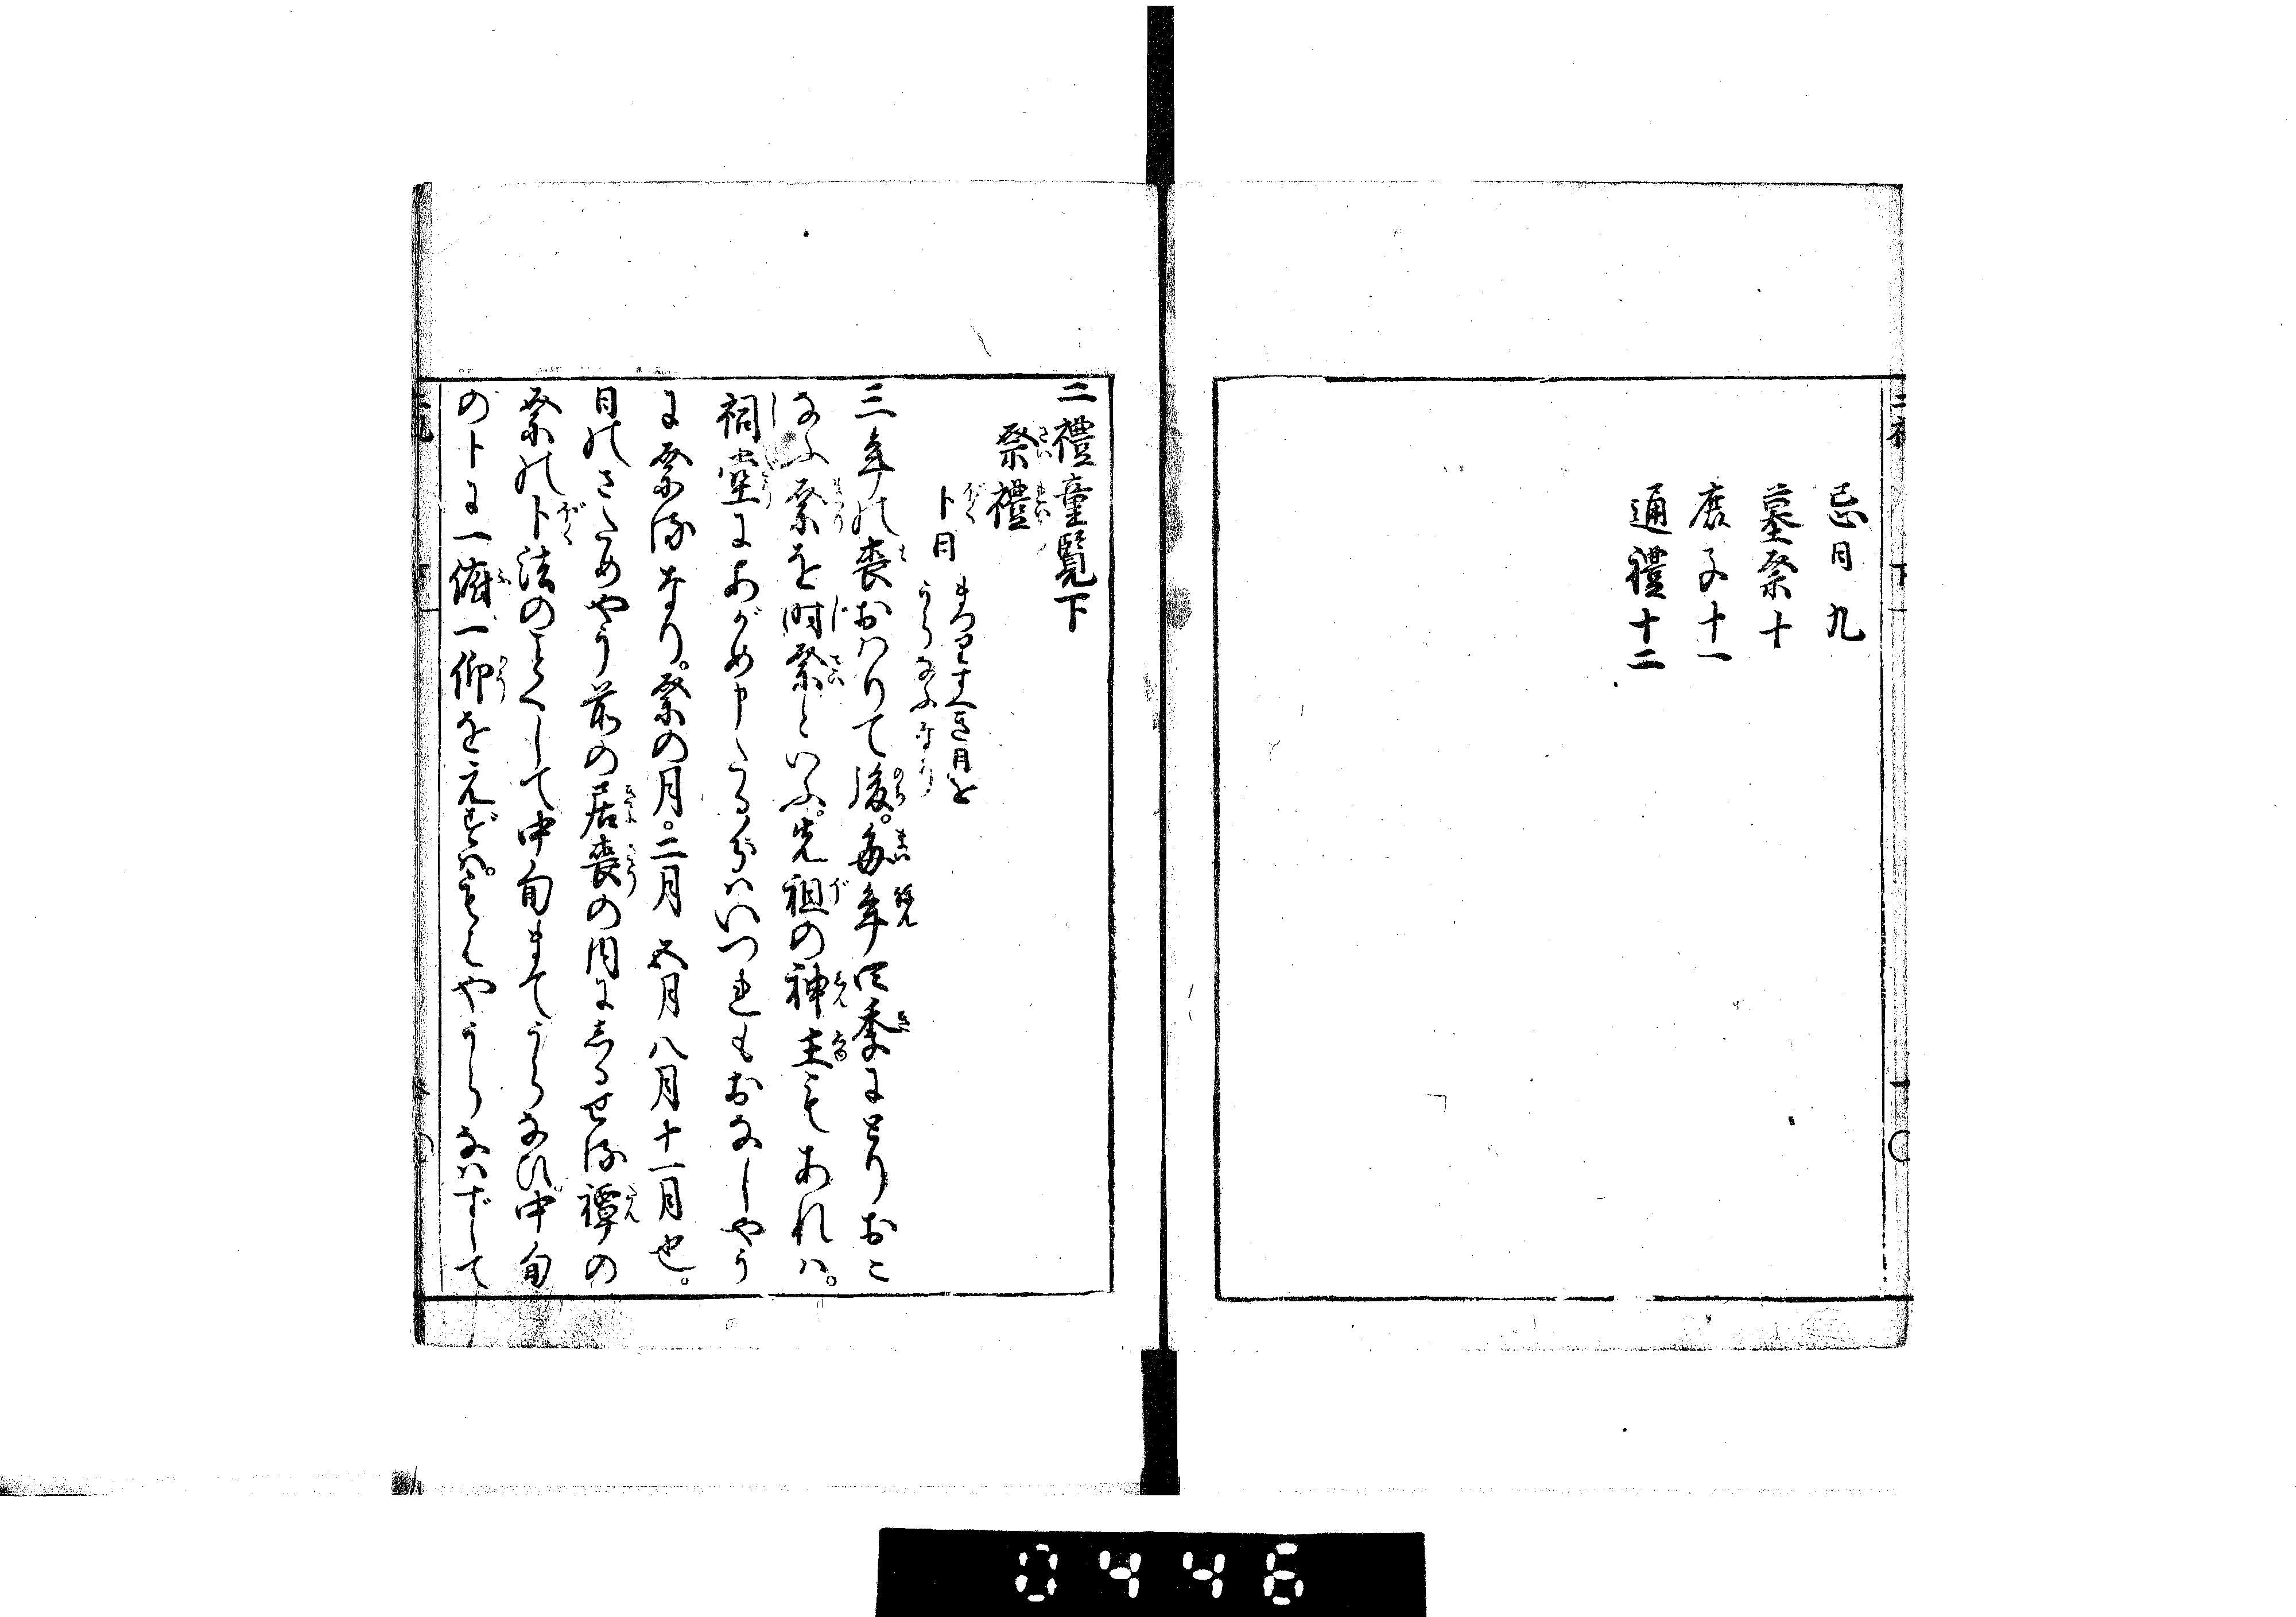 忌日九
墓祭十
庶子十一
通禮十二
二禮童覧下
祭禮
卜日 まつりすへき日を
うらなふなり
三年の喪おハりて後。毎年四季にとりおこ
なふ祭を時祭といふ。先祖の神主にてあれハ。
祠堂にあがめ申たるぶハいつれもおなしやう
に祭るなり。祭の月。二月五月八月十一月也。
日のさためやう前の居喪の内にしるせる禫の
祭の卜法のことくして中旬まてうらなひ。中旬
の卜に一俯一仰をえざれハ。もはやうらなハずして
0446